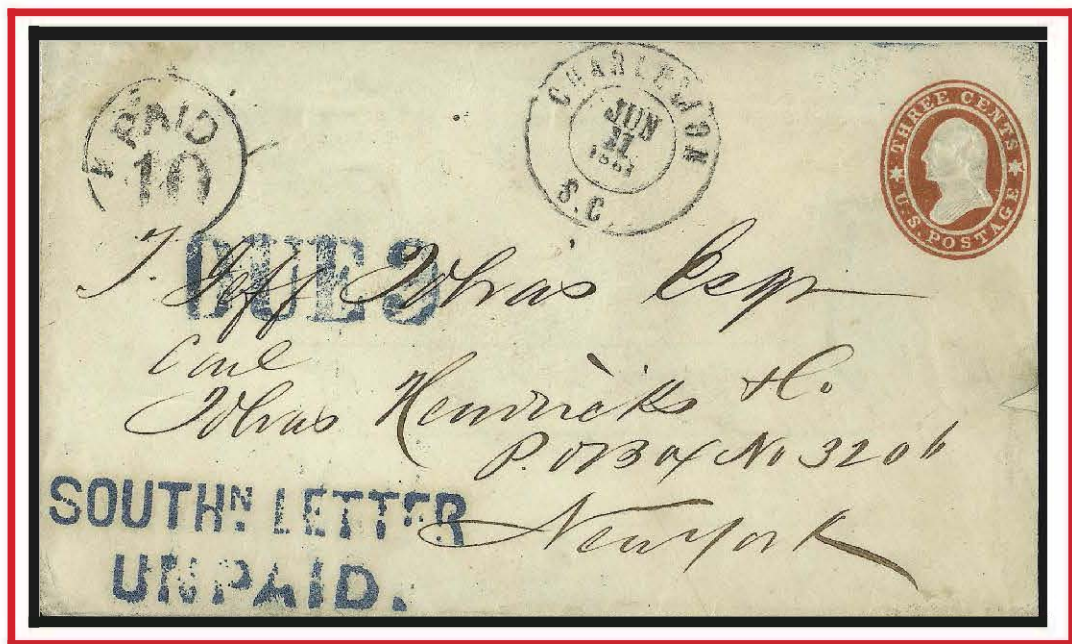 PAID
10
CHARLESTON
JUN
11
S.C.
THREE CENTS
U.S. POSTAGE
DUE 3
T. Jeff Tobias Esqr
Care
Tobias Hendricks & Co.
P.O Box No 3206
New York
SOUTHN. LETTER
UNPAID.